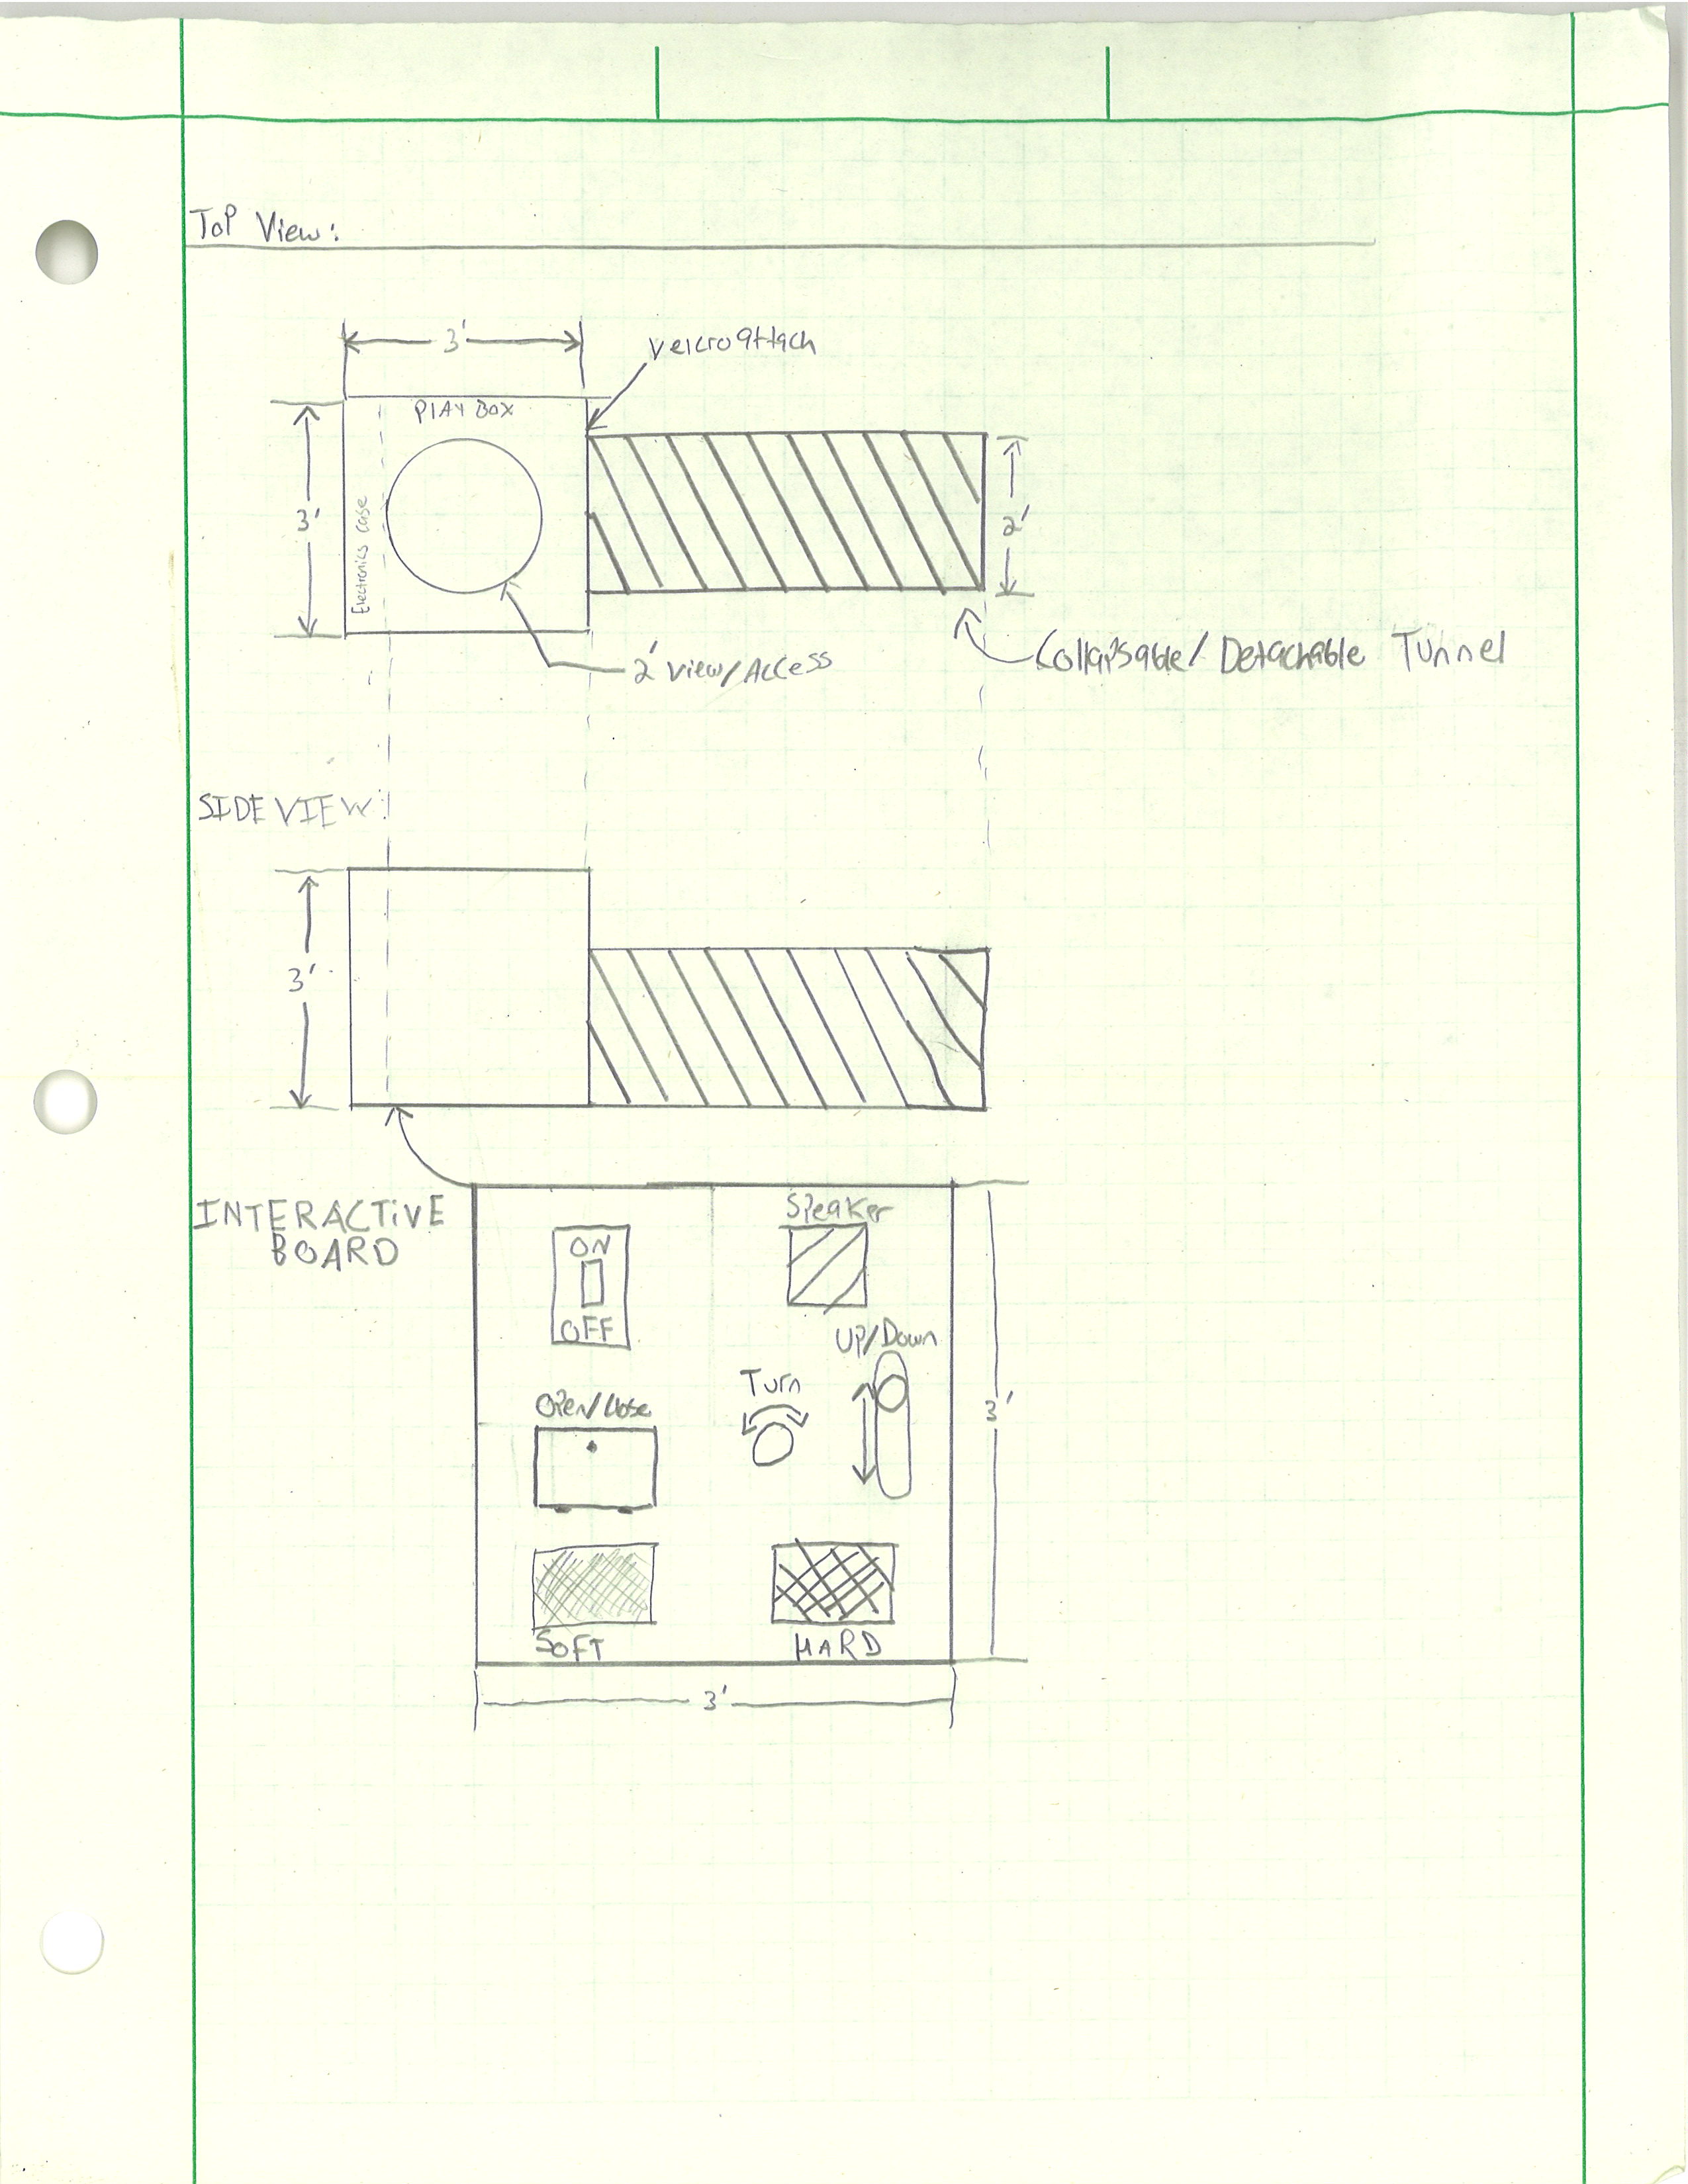 Top View:
3'
Velcro attach
PLAY BOX
3'
Electronics Case
2'
2' View/Access
Collapsable/Detachable Tunnel
SIDE VIEW:
3'
INTERACTIVE
BOARD
Speaker
ON
OFF
UP/Down
Turn
Open/Close
3'
SOFT
HARD
3'